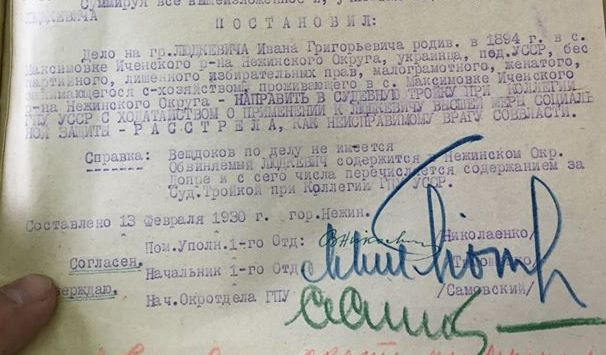 Суммируя все вышеизложенное и,
ЛЮДКЕВИЧА
П О С Т А Н О В И Л :
Дело на гр.ЛЮДКЕВИЧА Ивана Григорьевича родив. в 1894 г. в с.
Максимовке Иченского р-на Нежинского Округа, украинца, под.УССР, бес
партийного, лишенного избирательных прав, малограмотного, женатого,
занимающегося с-хозяйством, проживающего в с. Максимовке Иченского
р-на Нежинского Округа - НАПРАВИТЬ В СУДЕБНУЮ ТРОЙКУ ПРИ КОЛЛЕГИИ
ГПУ УССР С ХОДАТАЙСТВОМ О ПРИМЕНЕНИИ К ЛЮДКЕВИЧУ ВЫСШЕЙ МЕРЫ СОЦИАЛЬ
НОЙ ЗАЩИТЫ - Р А С С Т Р Е Л А, КАК НЕИСПРАВИМОМУ ВРАГУ СОВВЛАСТИ.
Справка: Вещдоков по делу не имеется
Обвиняемый ЛЮДКЕВИЧ содержится при Нежинском Окр.
Допре и с сего числа перечисляется содержанием за
Суд.Тройкой при Коллегии ГПУ УССР.
Составлено 13 Февраля 1930 г. гор.Нежин.
Пом.Уполн. 1-го Отд: /Николаенко/
Согласен. Начальник 1-го Отд
верждаю. Нач.Окротдела ГПУ /Самовский/